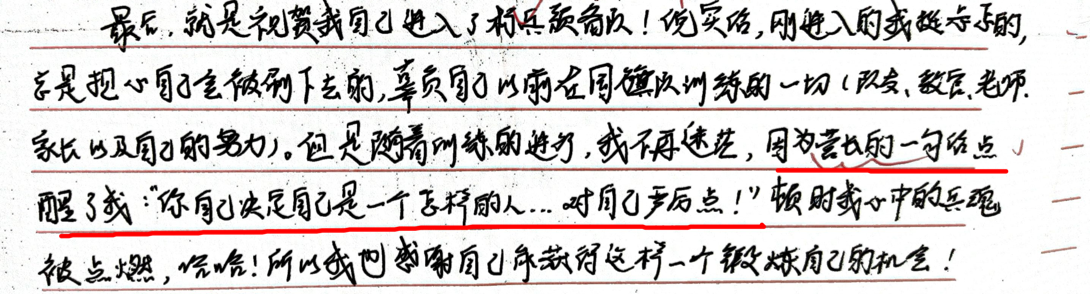 最后，就是祝贺我自己进入了标兵预备队！说实话，刚进入的我挺忐忑的，
总是担心自己会被刷下去的，辜负自己以前在国旗队训练的一切（队友、教官、老师、
家长以及自己的努力）。但是随着训练的进行，我不再迷茫，因为营长的一句话点
醒了我：“你自己决定自己是一个怎样的人…对自己严厉点！”顿时我心中的兵魂
被点燃，哈哈！所以我也感谢自己能获得这样一个锻炼自己的机会！